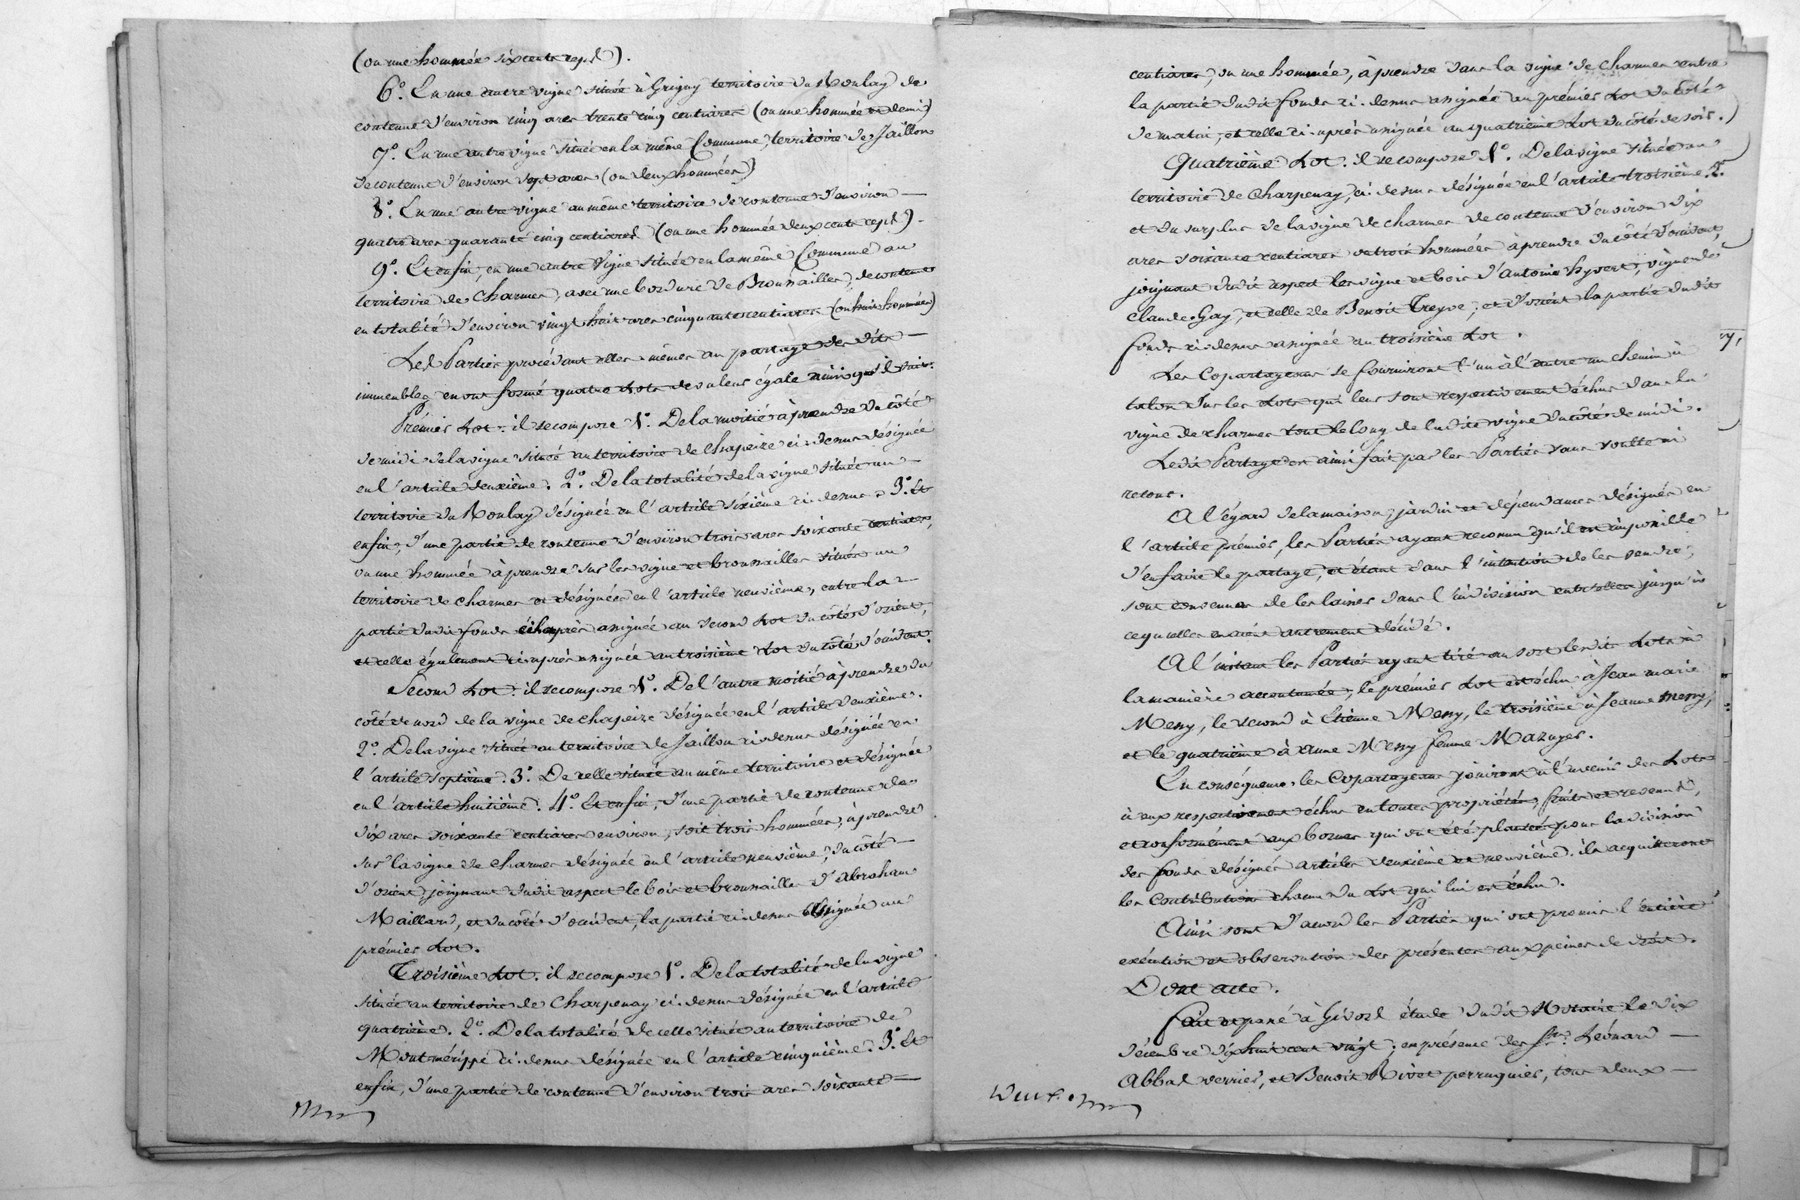 (ou une hommée six cent sept).
6°. En une autre vigne située à Grigny territoire du Roulay de
contenue d'environ cinq ares trente cinq centiares (ou une hommée et demi)
7°. En une autre vigne située en la même Commune, territoire de Jaillon
de contenue d'environ sept ares (ou deux hommées)
8°. En une autre vigne au même territoire de contenue d'environ —
quatre ares quarante cinq centiares (ou une hommée deux cent sept).
9°. Et enfin, en une autre vigne située en la même Commune au
territoire de Charmes, avec une bordure de Broussailles, de contenue
en totalité d'environ vingt huit ares cinquante centiares (ou huit hommées)
Les Parties procédant elles-mêmes au partage des dits —
immeubles en ont formé quatre Lots de valeur égale ainsi qu'il suit.
Prémier Lot: il se compose 1°. De la moitié à prendre du côté
de midi de la vigne située au territoire de Chapeize ci-dessus désignée
en l'article deuxième. 2°. De la totalité de la vigne située au —
territoire du Roulay désignée en l'article sixième ci-dessus. 3°. Et
enfin, d'une partie de contenue d'environ trois ares soixante centiares,
ou une hommée à prendre sur les vigne et broussailles situées au
territoire de Charmes et désignées en l'article neuvième, entre la —
partie dudit fonds ci-après assignée au second Lot du côté d'orient,
et celle également ci-après assignée au troisième Lot du côté d'occident.
Second Lot: il se compose 1°. De l'autre moitié à prendre du
côté de nord de la vigne de Chapeize désignée en l'article deuxième.
2°. De la vigne située au territoire de Jaillon ci-dessus désignée en
l'article septième. 3°. De celle située au même territoire et désignée
en l'article huitième. 4°. Et enfin, d'une partie de contenue de
dix ares soixante centiares environ, soit trois hommées, à prendre
sur la vigne de Charmes désignée en l'article neuvième, du côté —
d'orient joignant dudit aspect le bois et broussailles d'Abraham
Maillard, et du côté d'occident, la partie ci-dessus assignée au
prémier Lot.
Troisième Lot: il se compose 1°. De la totalité de la vigne
située au territoire de Charpenay ci-dessus désignée en l'article
quatrième. 2°. De la totalité de celle située au territoire de
Montmérippé ci-dessus désignée en l'article cinquième. 3°. Et
enfin, d'une partie de contenue d'environ trois ares soixante —
centiares, ou une hommée, à prendre dans la vigne de Charmes entre
la partie dudit fonds ci-dessus assignée au prémier Lot du côté
de matin, et celle ci-après assignée au quatrième Lot du côté de soir.)
Quatrième Lot: il se compose 1°. De la vigne située au
territoire de Charpenay, ci-dessus désignée en l'article troisième. 2°.
et du surplus de la vigne de Charmes de contenue d'environ dix
ares soixante centiares ou trois hommées à prendre du côté d'occident,
joignant dudit aspect les vigne et bois d'Antoine Hyvert, vigne de
Claude Gay, et celle de Benoit Treyve; et d'orient la partie dudit
fonds ci-dessus assignée au troisième Lot.
Les Copartageans se fourniront l'un à l'autre un chemin à
talon sur les Lots qui leur sont respectivement échus dans la
vigne de Charmes tout le long de ladite vigne du côté de midi.
Ledit Partage est ainsi fait par les Parties sans soulte ni
retour.
A l'égard de la maison, jardin et dépendances désignés en
l'article prémier, les Parties ayant reconnu qu'il est impossible
d'en faire le partage, et étant dans l'intention de les vendre,
sont convenues de les laisser dans l'indivision entr'elles jusqu'à
ce qu'elles en aient autrement décidé.
A l'instant les Parties ayant tiré au sort lesdits Lots à
la manière accoutumée, le prémier Lot est échu à Jean marie
Messy, le second à Etienne Messy, le troisième à Jeanne Messy,
et le quatrième à Anne Messy femme Mazuyer.
En conséquence, les Copartageans jouiront à l'avenir des Lots
à eux respectivement échus en toutes propriétés, fruits et revenus,
et conformément aux bornes qui ont été plantées pour la division
des fonds désignés articles deuxième et neuvième. ils acquitteront
les Contributions chacun du Lot qui lui est échu.
Ainsi sont d'accord les Parties qui ont promis l'entière
exécution et observation des présentes aux peines de droit.
Dont acte.
Fait et passé à Givors étude dudit Notaire le dix
décembre dix huit cent vingt; en présence des Srs Léonard —
Abbal verrier, et Benoit Rivoet perruquier, tous deux —